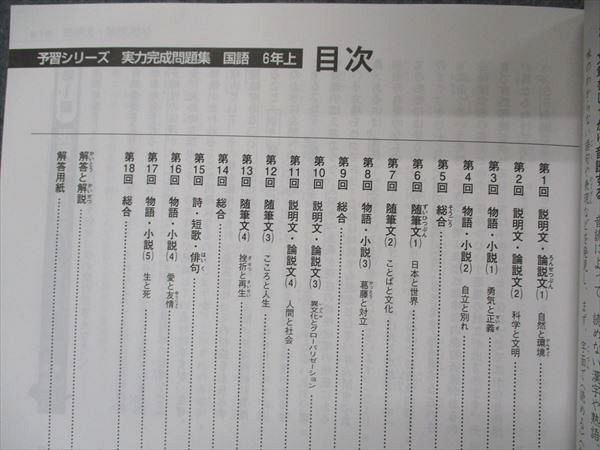 予習シリーズ 実力完成問題集 国語 6年上 目次
第1回 説明文・論説文(1) 自然と環境
第2回 説明文・論説文(2) 科学と文明
第3回 物語・小説(1) 勇気と正義
第4回 物語・小説(2) 自立と別れ
第5回 総合
第6回 随筆文(1) 日本と世界
第7回 随筆文(2) ことばと文化
第8回 物語・小説(3) 葛藤と対立
第9回 総合
第10回 説明文・論説文(3) 異文化とグローバリゼーション
第11回 説明文・論説文(4) 人間と社会
第12回 随筆文(3) こころと人生
第13回 随筆文(4) 挫折と再生
第14回 総合
第15回 詩・短歌・俳句
第16回 物語・小説(4) 愛と友情
第17回 物語・小説(5) 生と死
第18回 総合
解答と解説
解答用紙